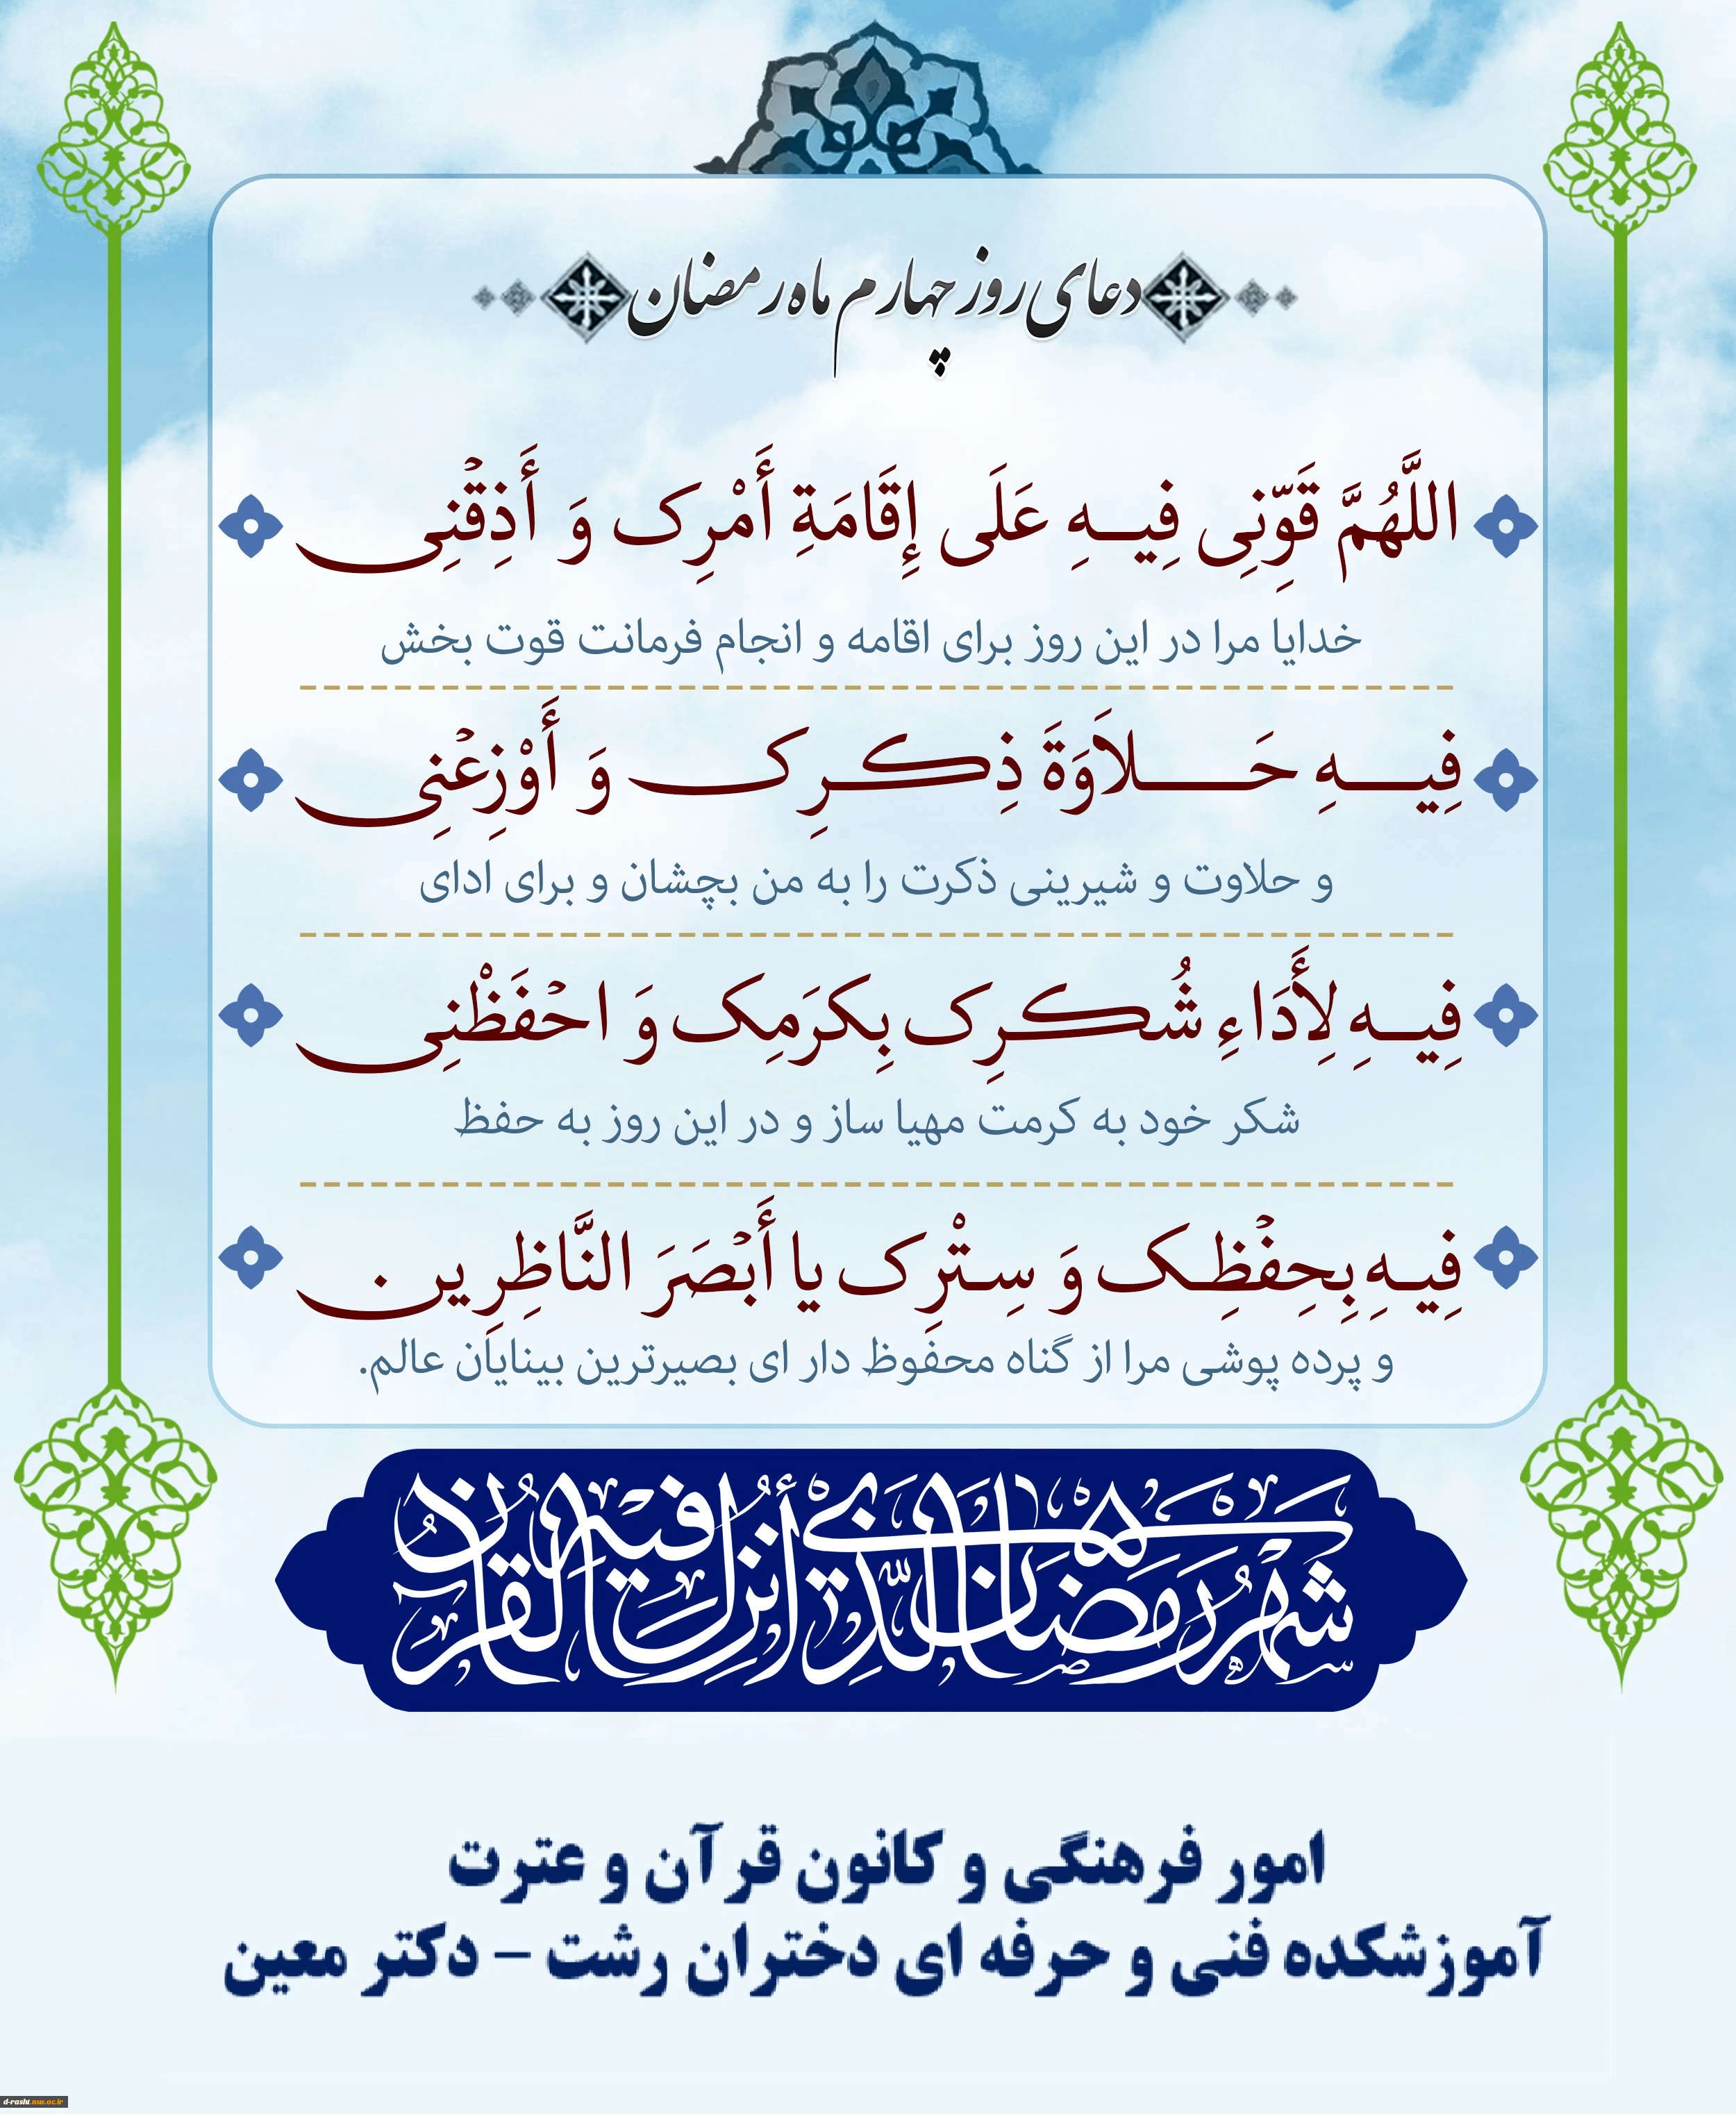 دعای روز چهارم ماه رمضان
اللَّهُمَّ قَوِّنِی فِیهِ عَلَی إِقَامَةِ أَمْرِک وَ أَذِقْنِی
خدایا مرا در این روز برای اقامه و انجام فرمانت قوت بخش
فِیهِ حَلاَوَةَ ذِکرِک وَ أَوْزِعْنِی
و حلاوت و شیرینی ذکرت را به من بچشان و برای ادای
فِیهِ لِأَدَاءِ شُکرِک بِکرَمِک وَ احْفَظْنِی
شکر خود به کرمت مهیا ساز و در این روز به حفظ
فِیهِ بِحِفْظِک وَ سِتْرِک یا أَبْصَرَ النَّاظِرِین .
و پرده پوشی مرا از گناه محفوظ دار ای بصیرترین بینایان عالم.
شهر رمضان الذی أنزل فیه القرآن
امور فرهنگی و کانون قرآن و عترت
آموزشکده فنی و حرفه ای دختران رشت – دکتر معین
d-rasht.nus.ac.ir